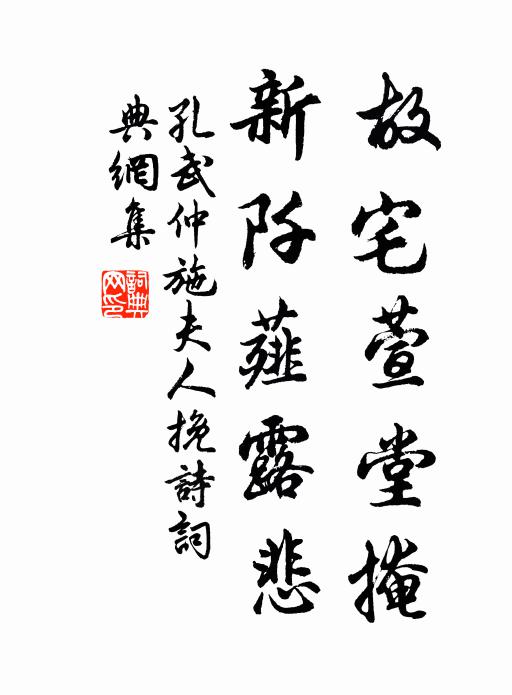 故宅萱堂掩
新阡薤露悲
孔武仲施夫人挽詩詞
典網集
詞典網印